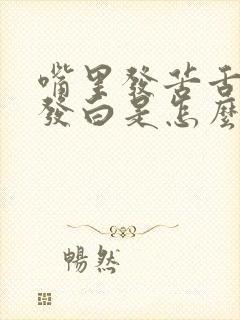 嘴里發苦舌
發白是怎麼
暢然